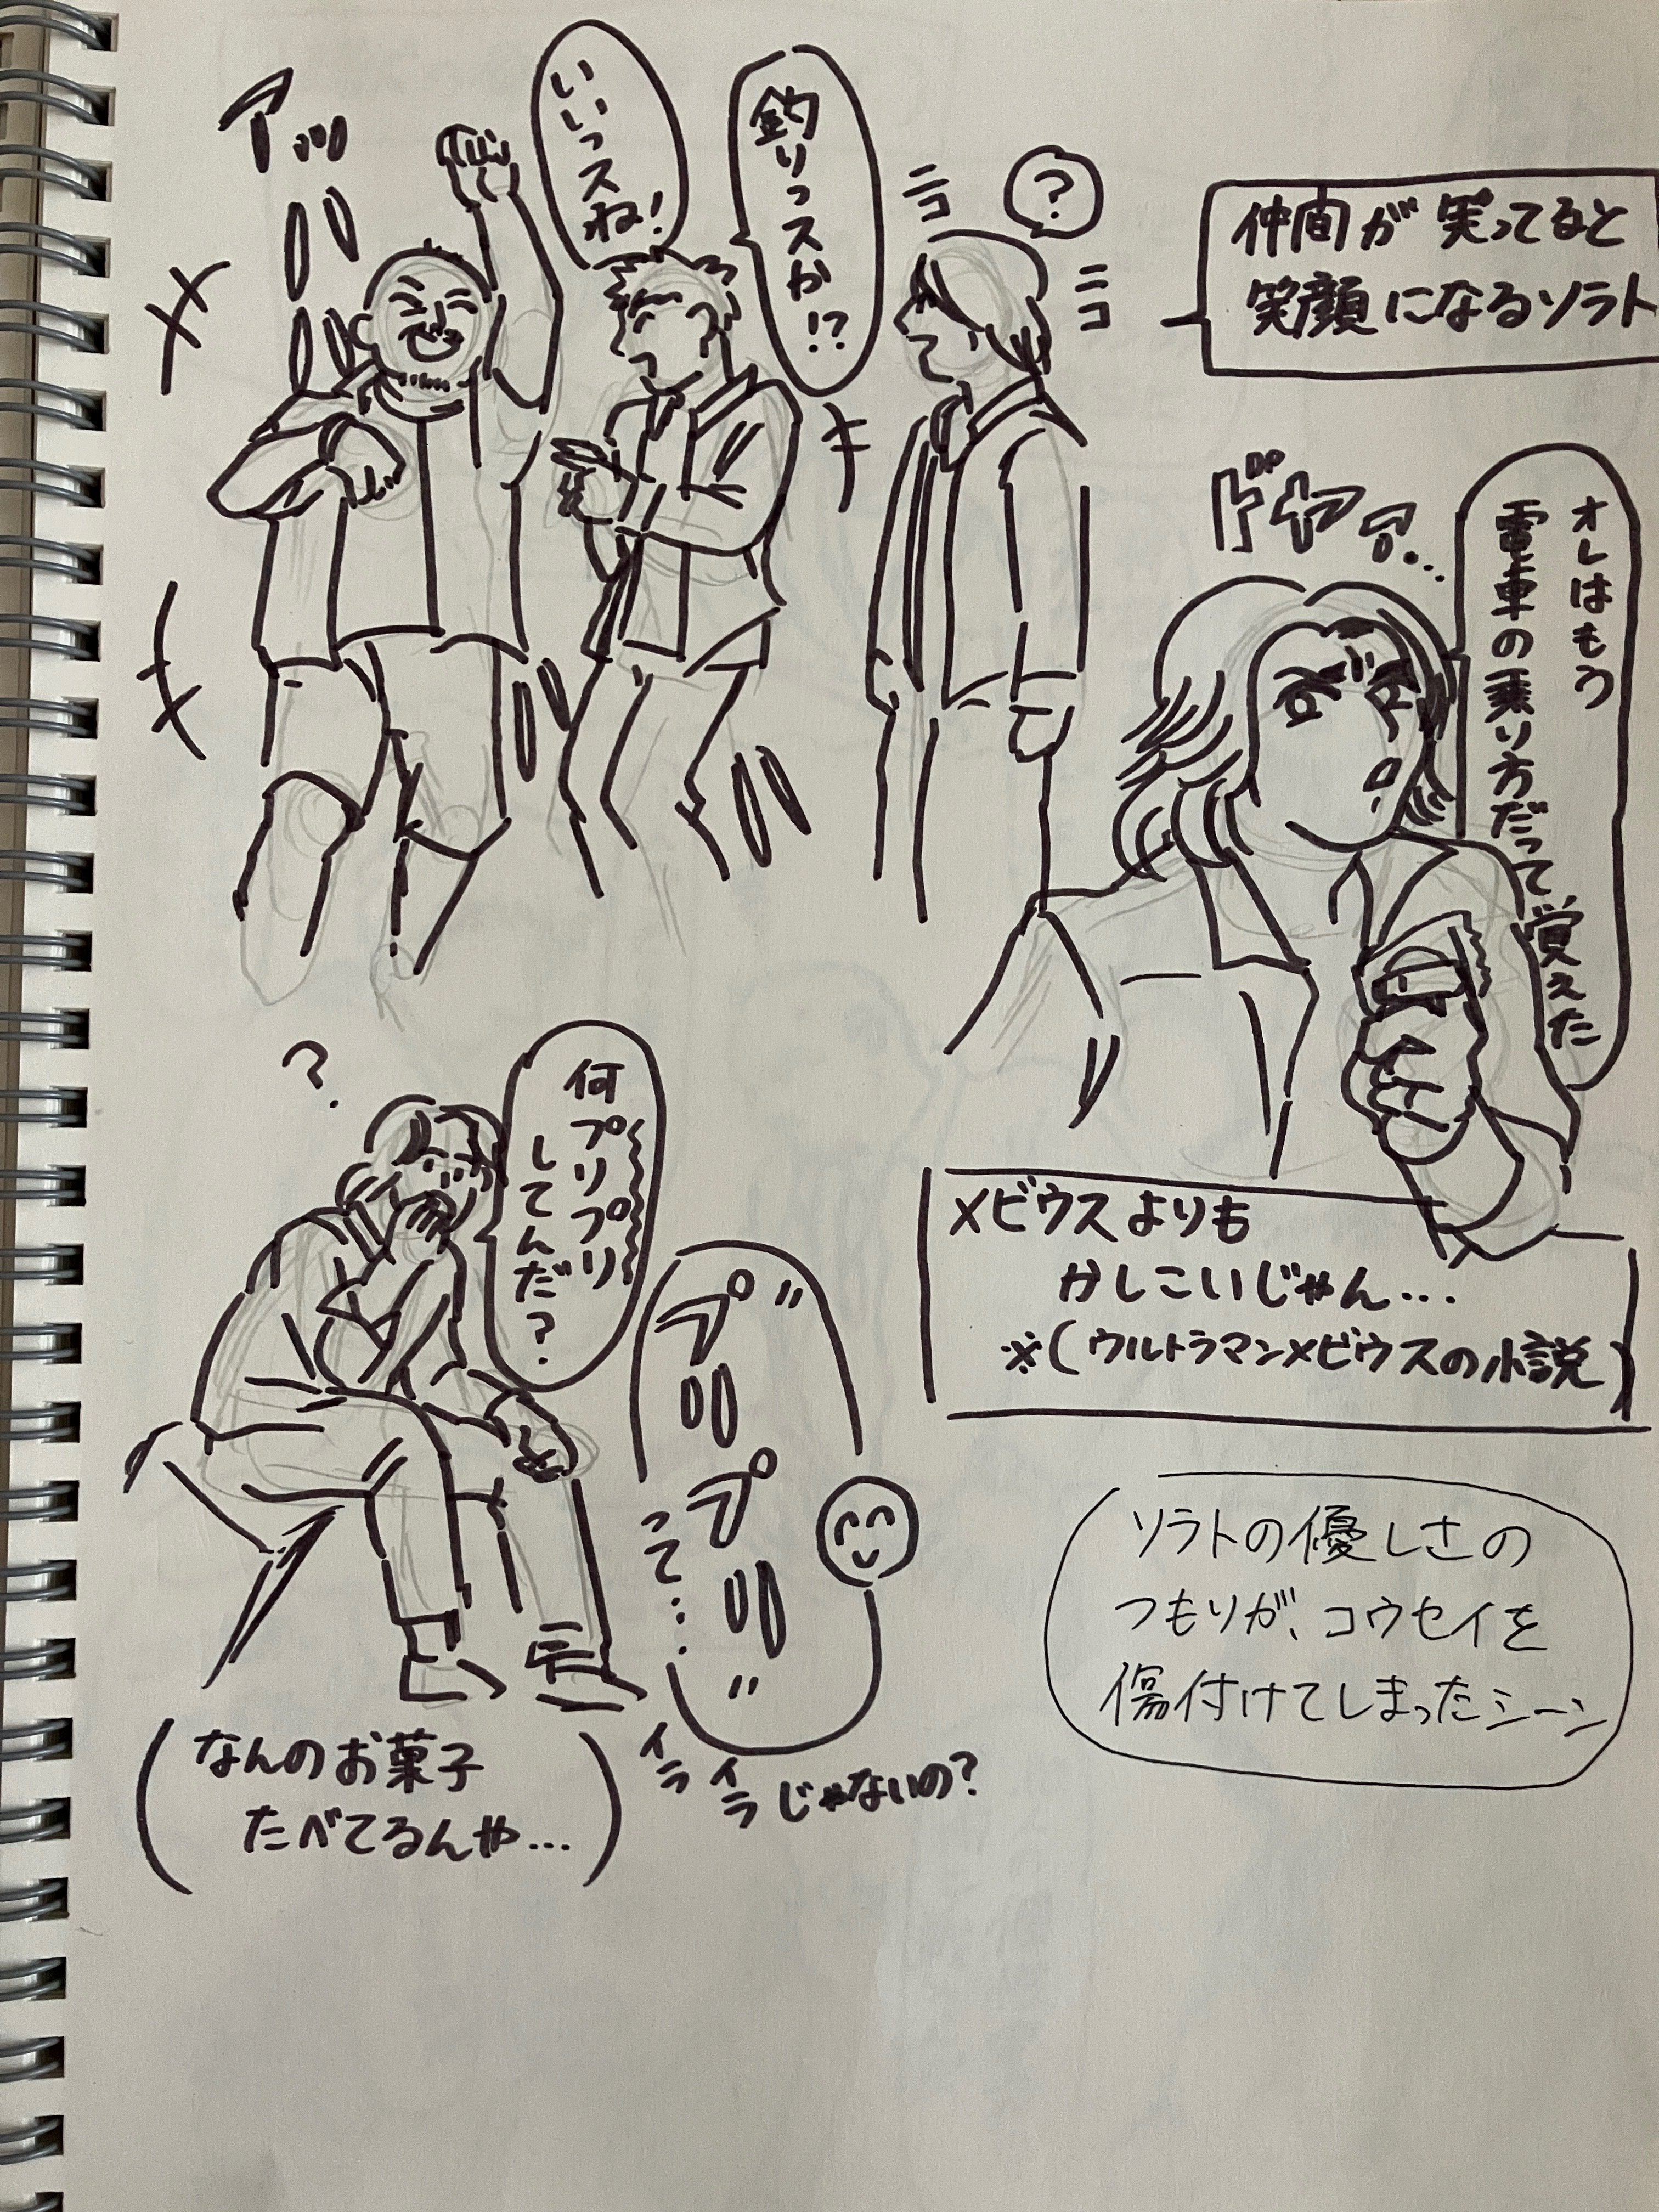 仲間が笑ってると
笑顔になるソラト
?
ニコ
ニコ
釣りっスか!?
いいっスね!
アッ
オレはもう
電車の乗り方だって、覚えた
ドヤァ…
メビウスよりも
かしこいじゃん…
※(ウルトラマンメビウスの小説)
?
何プリプリ
してんだ?
"プリプリ"
って…
イライラじゃないの?
(なんのお菓子
たべてるんや…)
ソラトの優しさの
つもりが、コウセイを
傷付けてしまったシーン